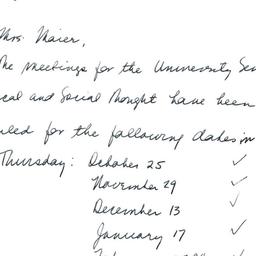 Mrs. Maier,
The meetings for the University Sem
cal and Social Thought have been
uled for the following dates in
Thursday: October 25 ✓
November 29 ✓
December 13 ✓
January 17 ✓